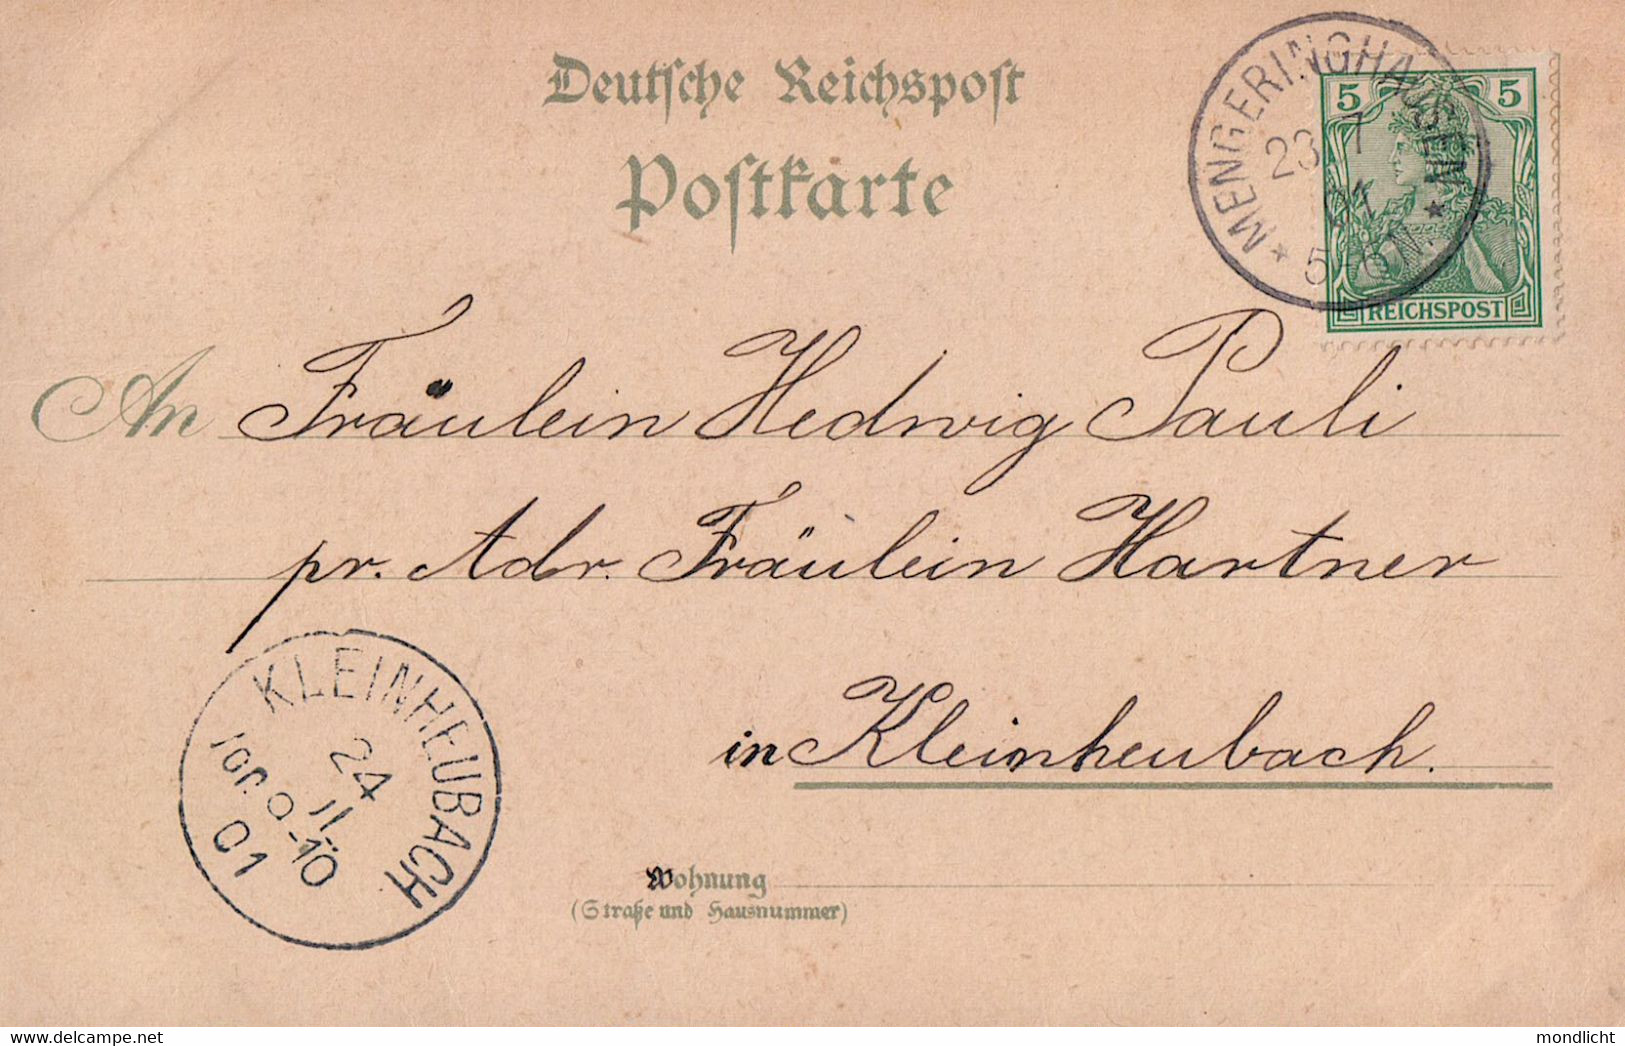 Deutsche Reichspost
Postkarte
MENGERINGHAUSEN
23 7
5-6N.
5 5
REICHSPOST
An Fräulein Hedwig Pauli
pr. Adr. Fräulein Hartner
in Kleinheubach.
KLEINHEUBACH
24
II
01
Wohnung
(Straße und Hausnummer)
www.delcampe.net
mondlicht